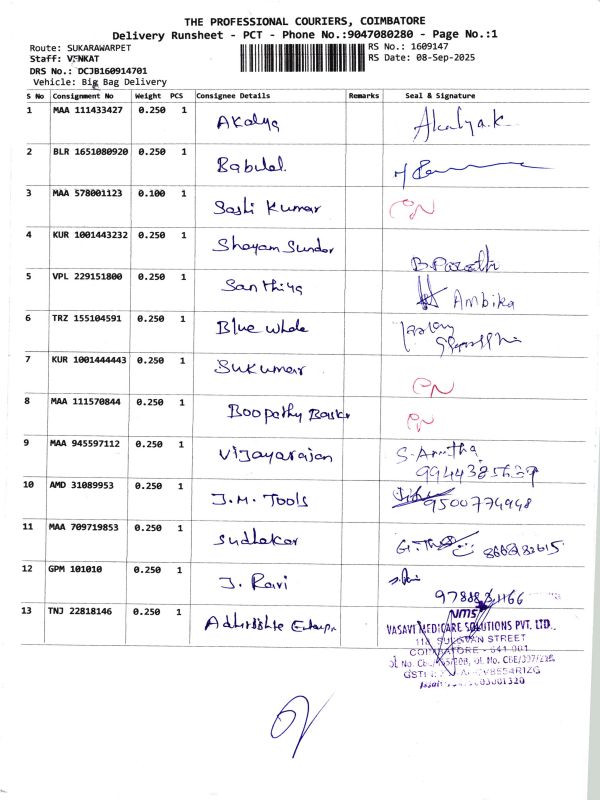 THE PROFESSIONAL COURIERS, COIMBATORE
Delivery Runsheet - PCT - Phone No.:9047080280 - Page No.:1
Route: SUKARAWARPET
RS No.: 1609147
Staff: VENKAT
RS Date: 08-Sep-2025
DRS No.: DCJB160914701
Vehicle: Big Bag Delivery
S No Consignment No Weight PCS Consignee Details Remarks Seal & Signature
1 MAA 111433427 0.250 1 Akalya Akalya.K
2 BLR 1651080920 0.250 1 Babulal
3 MAA 578001123 0.100 1 Sashi Kumar
4 KUR 1001443232 0.250 1 Shayam Sundar B.Parathi
5 VPL 229151800 0.250 1 Santhiya Ambika
6 TRZ 155104591 0.250 1 Blue whale
7 KUR 1001444443 0.250 1 Sukumar
8 MAA 111570844 0.250 1 Boopathy
9 MAA 945597112 0.250 1 Vijayarajan S. Amutha
10 AMD 31089953 0.250 1 J.M. Tools 9500774948
11 MAA 709719853 0.250 1 Sudhakar
12 GPM 101010 0.250 1 J. Ravi
13 TNJ 22818146 0.250 1
VMS
VASAVI MEDICARE SOLUTIONS PVT. LTD.
STREET
COIMBATORE - 641 001.